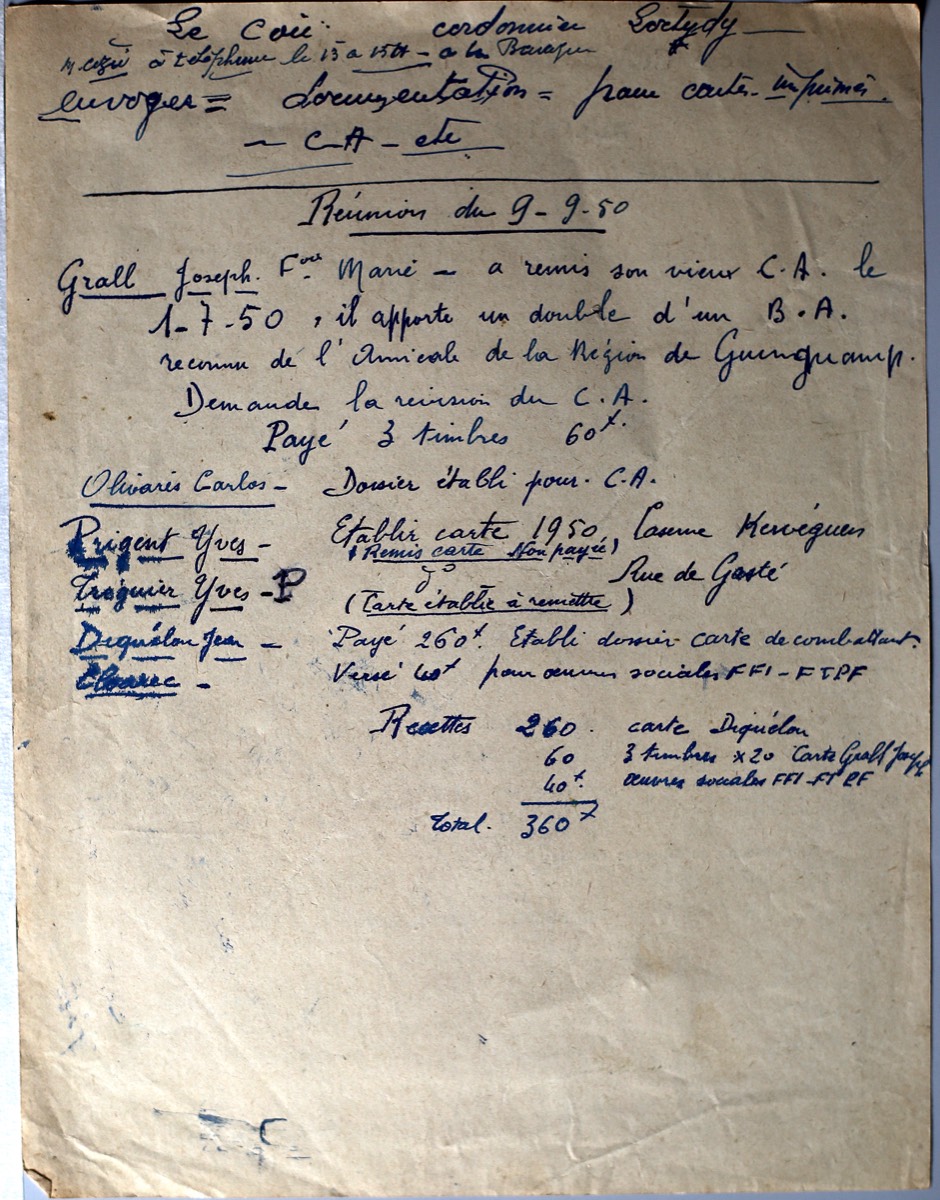 Le Coz cordonnier Loctudy —
à téléphoné le 13 a 15H — a la
envoyer = documentation = pour cartes - imprimés.
— C-A — etc
Réunion du 9-9-50
Grall Joseph. Fois Marié — a remis son vieux C.A. le
1-7-50, il apporte un double d'un B.A.
reconnu de l'Amicale de la Région de Guinguamp.
Demande la revision du C.A.
Payé 3 timbres 60f.
Olivarès Carlos — Dossier établi pour. C.A.
Prigent Yves — Etablir carte 1950, Caserne Kervéguen
(Remis carte Non payée)
Rue de Gasté
Tréguier Yves - P
(Carte établie à remettre)
Diquélou Jean — Payé 260f. Etabli dossier carte de combattant.
— Versé 40f pour œuvres sociales FFI-FTPF
Recettes 260. carte Diquélou
60 3 timbres x20 Carte Grall Joseph
40f. œuvres sociales FFI-FTPF
Total. 360f